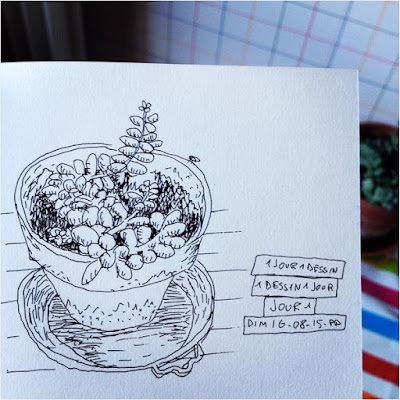 1 JOUR 1 DESSIN
1 DESSIN 1 JOUR
JOUR 1
DIM 16-08-15-PP